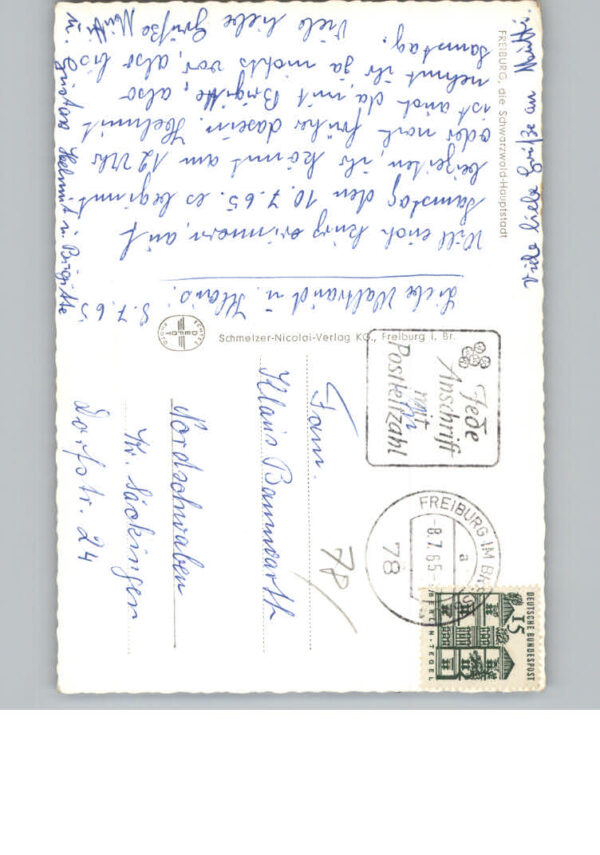 FREIBURG, die Schwarzwald-Hauptstadt
8.7.65
Liebe Waltraud u. Klaus!
Will euch kurz erinnern, auf
Samstag den 10.7.65. es beginnt
beizeiten, ihr könnt um 12 Uhr
oder noch früher dasein. Helmut
ist auch da, mit Brigitte, also
nehmt ihr ja nichts vor, also bis
Samstag.
Viele liebe Grüße Mutti
u. Gustav Helmut u. Brigitte
Viele liebe Grüße an
Schmelzer-Nicolai-Verlag KG., Freiburg i. Br.
Jede
Anschrift
mit
Postleitzahl
FREIBURG IM
-8.7.65-
78
a
15
DEUTSCHE BUNDESPOST
BERLIN-TEGEL
An
Fam.
Klaus Bannwarth
78
Nordschwaben
Kr. Säckingen
Dorfstr. 24